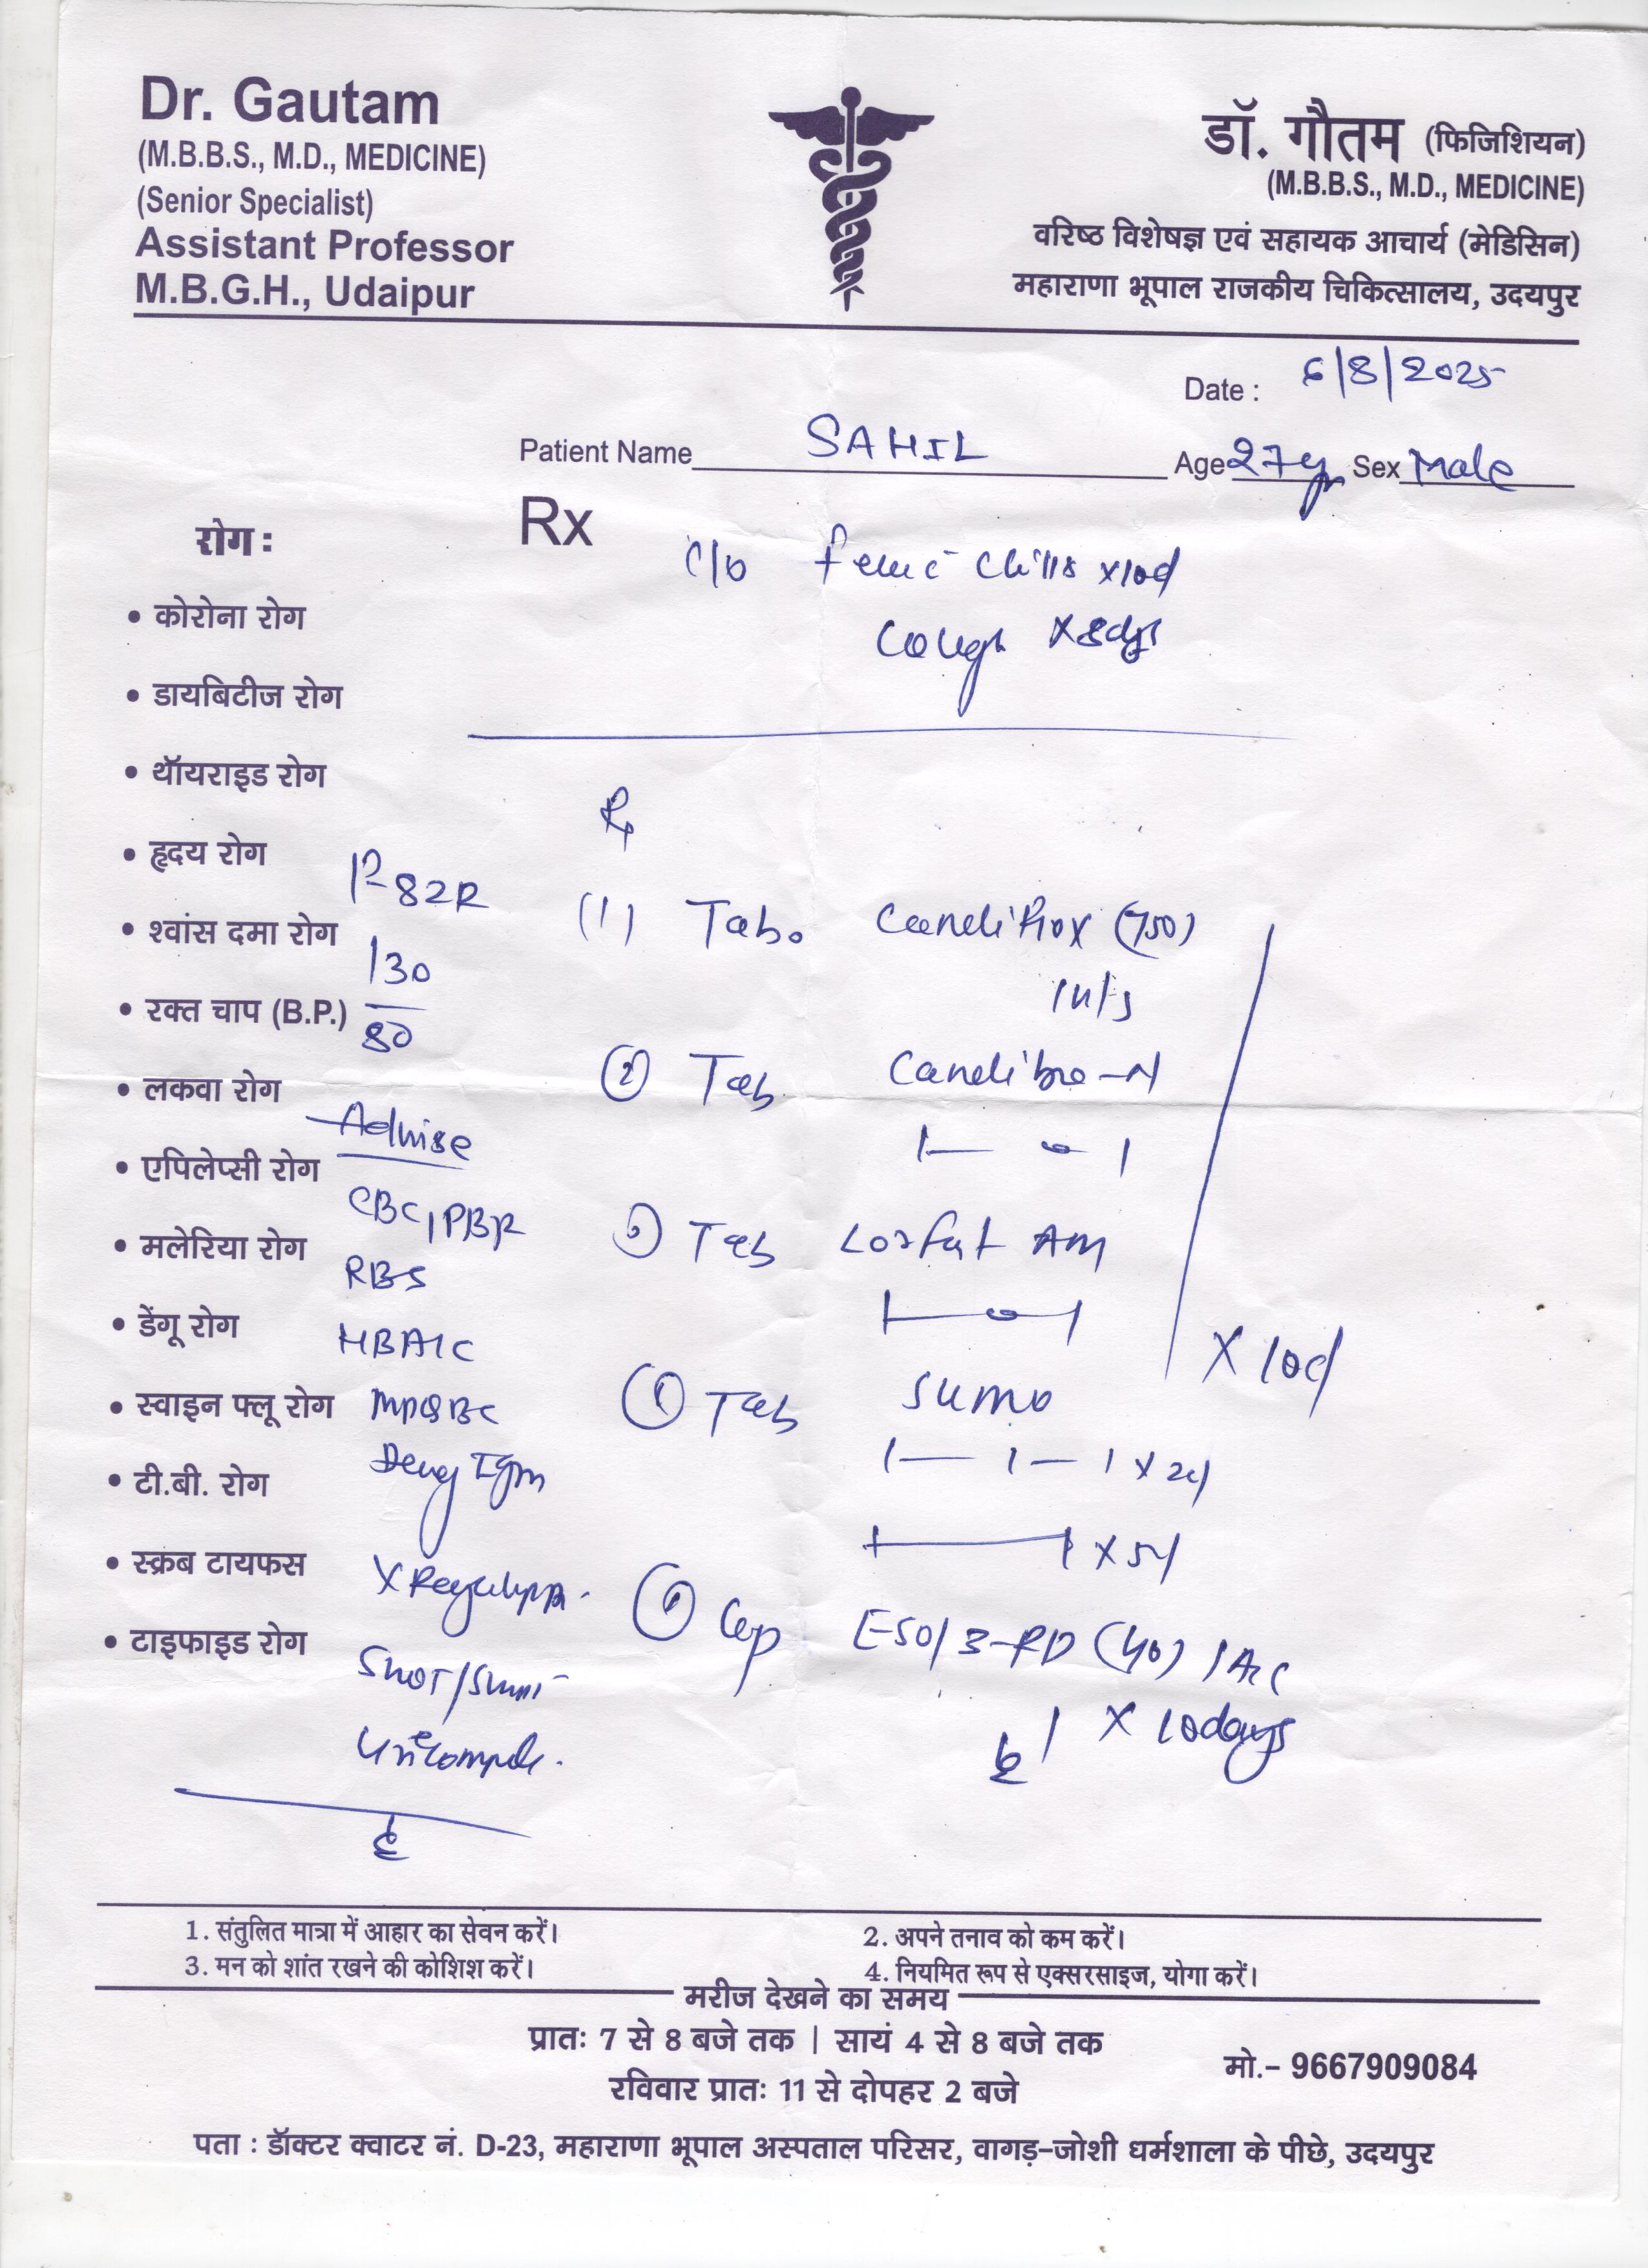 Dr. Gautam
(M.B.B.S., M.D., MEDICINE)
(Senior Specialist)
Assistant Professor
M.B.G.H., Udaipur
डॉ. गौतम (फिजिशियन)
(M.B.B.S., M.D., MEDICINE)
वरिष्ठ विशेषज्ञ एवं सहायक आचार्य (मेडिसिन)
महाराणा भूपाल राजकीय चिकित्सालय, उदयपुर
Date : 6/8/2025
Patient Name SAHIL Age 27yr Sex Male
Rx
C/o Fever c chills x10d
Cough x8dys
रोग :
• कोरोना रोग
• डायबिटीज रोग
• थॉयराइड रोग
• हृदय रोग
• श्वांस दमा रोग
• रक्त चाप (B.P.)
• लकवा रोग
• एपिलेप्सी रोग
• मलेरिया रोग
• डेंगू रोग
• स्वाइन फ्लू रोग
• टी.बी. रोग
• स्क्रब टायफस
• टाइफाइड रोग
P-82R
130
80
Advise
CBC, PBF
RBS
HBA1C
MPQBC
IgM
SGOT/
Urine
Rx
(1) Tab. (750)
② Tab
1— 0 1
Tab AM
1—0—1
Tab Sumo
1— 1 — 1 x 2d
1——1 x 5d
X 10d
Cap (40)
1 X 10days
1. संतुलित मात्रा में आहार का सेवन करें।
2. अपने तनाव को कम करें।
3. मन को शांत रखने की कोशिश करें।
4. नियमित रूप से एक्सरसाइज, योगा करें।
मरीज देखने का समय
प्रातः 7 से 8 बजे तक | सायं 4 से 8 बजे तक
रविवार प्रातः 11 से दोपहर 2 बजे
मो.- 9667909084
पता : डॉक्टर क्वाटर नं. D-23, महाराणा भूपाल अस्पताल परिसर, वागड़-जोशी धर्मशाला के पीछे, उदयपुर